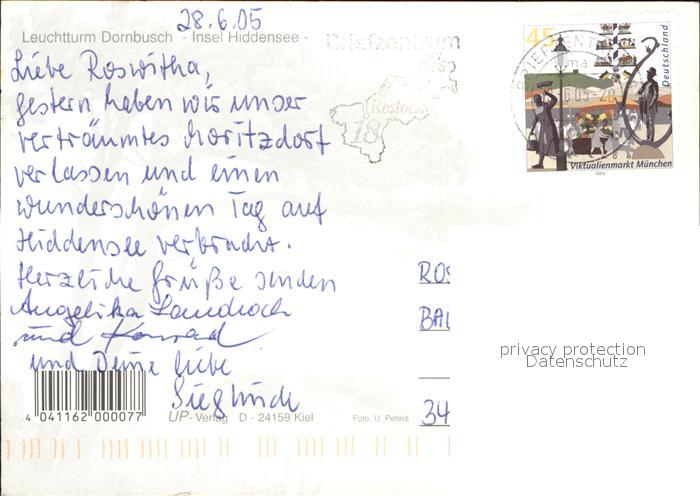 28.6.05
Leuchtturm Dornbusch - Insel Hiddensee -
Liebe Roswitha,
gestern haben wir unser
verträumtes Moritzdorf
verlassen und einen
wunderschönen Tag auf
Hiddensee verbracht.
Herzliche Grüße senden
Angelika
und Konrad
und Deine liebe
Sieglinde
4 041162 000077
UP-Verlag D - 24159 Kiel
Foto: U. Peters
Briefzentrum
Rostock
18
45
Deutschland
Viktualienmarkt München
2003
ROS
BAL
34
privacy protection
Datenschutz